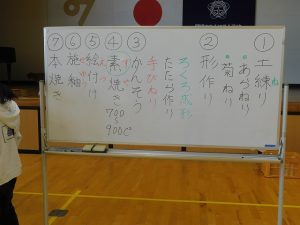 ①
土練り
ねり
・あらねり
・菊ねり
②
形作り
ろくろ成形
たたら作り
手びねり
③
かんそう
④
素焼き
700
〜
900℃
⑤
絵付け
⑥
施釉
⑦
本焼き